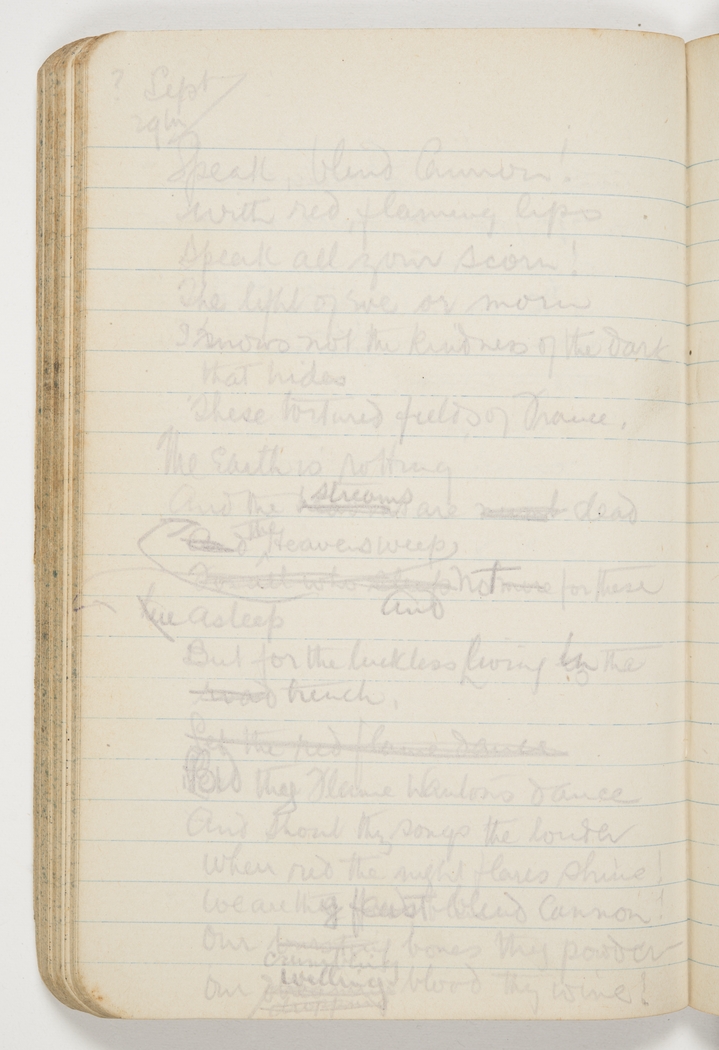 ? Sept
29th
Speak, blind Cannon!
with red, flaming lips
Speak all your scorn!
The light of eve or morn
Knows not the kindness of the dark
that hides
These tortured fields of France.
The Earth is rotting
And the streams are dead
And the Heavens weep
Not for these
and
asleep
But for the luckless living in the
road trench.
Let the red flame dance
Bid thy Flame Wantons dance
And shout thy songs the louder
When red the night flares shine!
We are thy feast blind Cannon!
Our crumbling bones thy powder
Our willing blood thy wine!
dripping